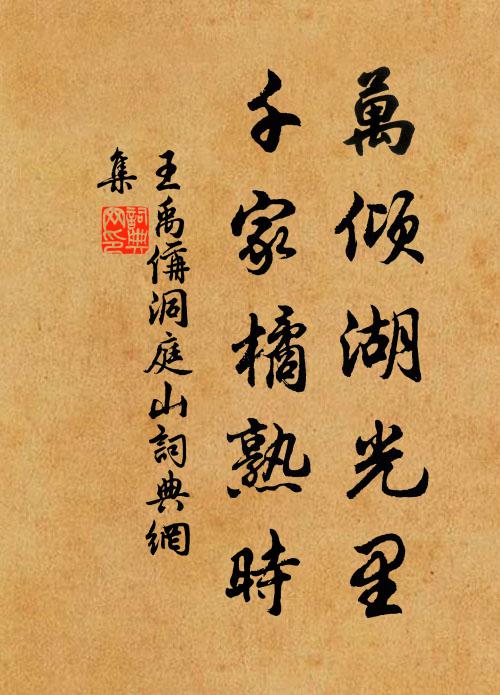 萬傾湖光里
千家橘熟時
王禹偁洞庭山詞典網
集
詞典網印